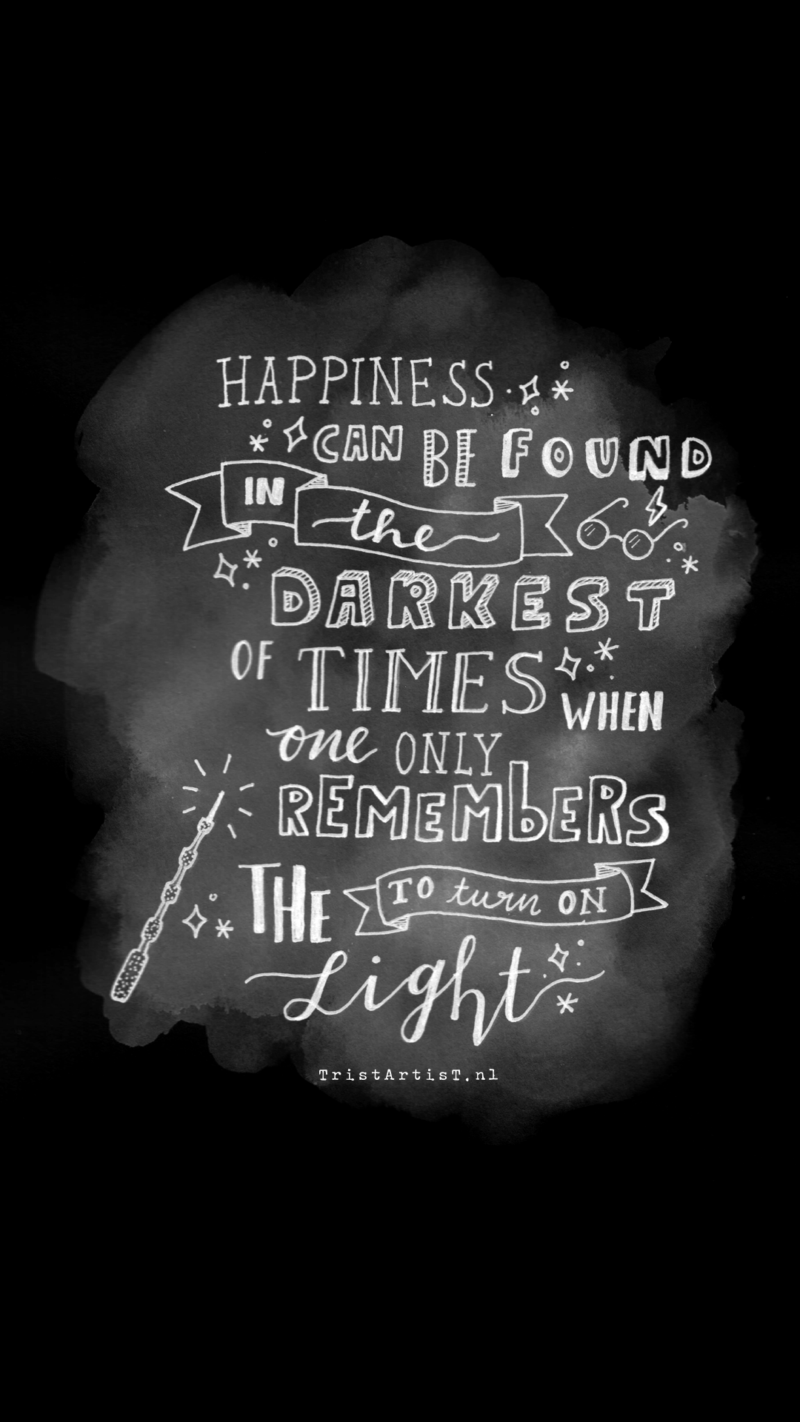 HAPPINESS
CAN BE FOUND
IN the
DARKEST
OF TIMES
WHEN
one ONLY
REMEMbERS
THE TO turn ON
Light
TristArtisT.nl